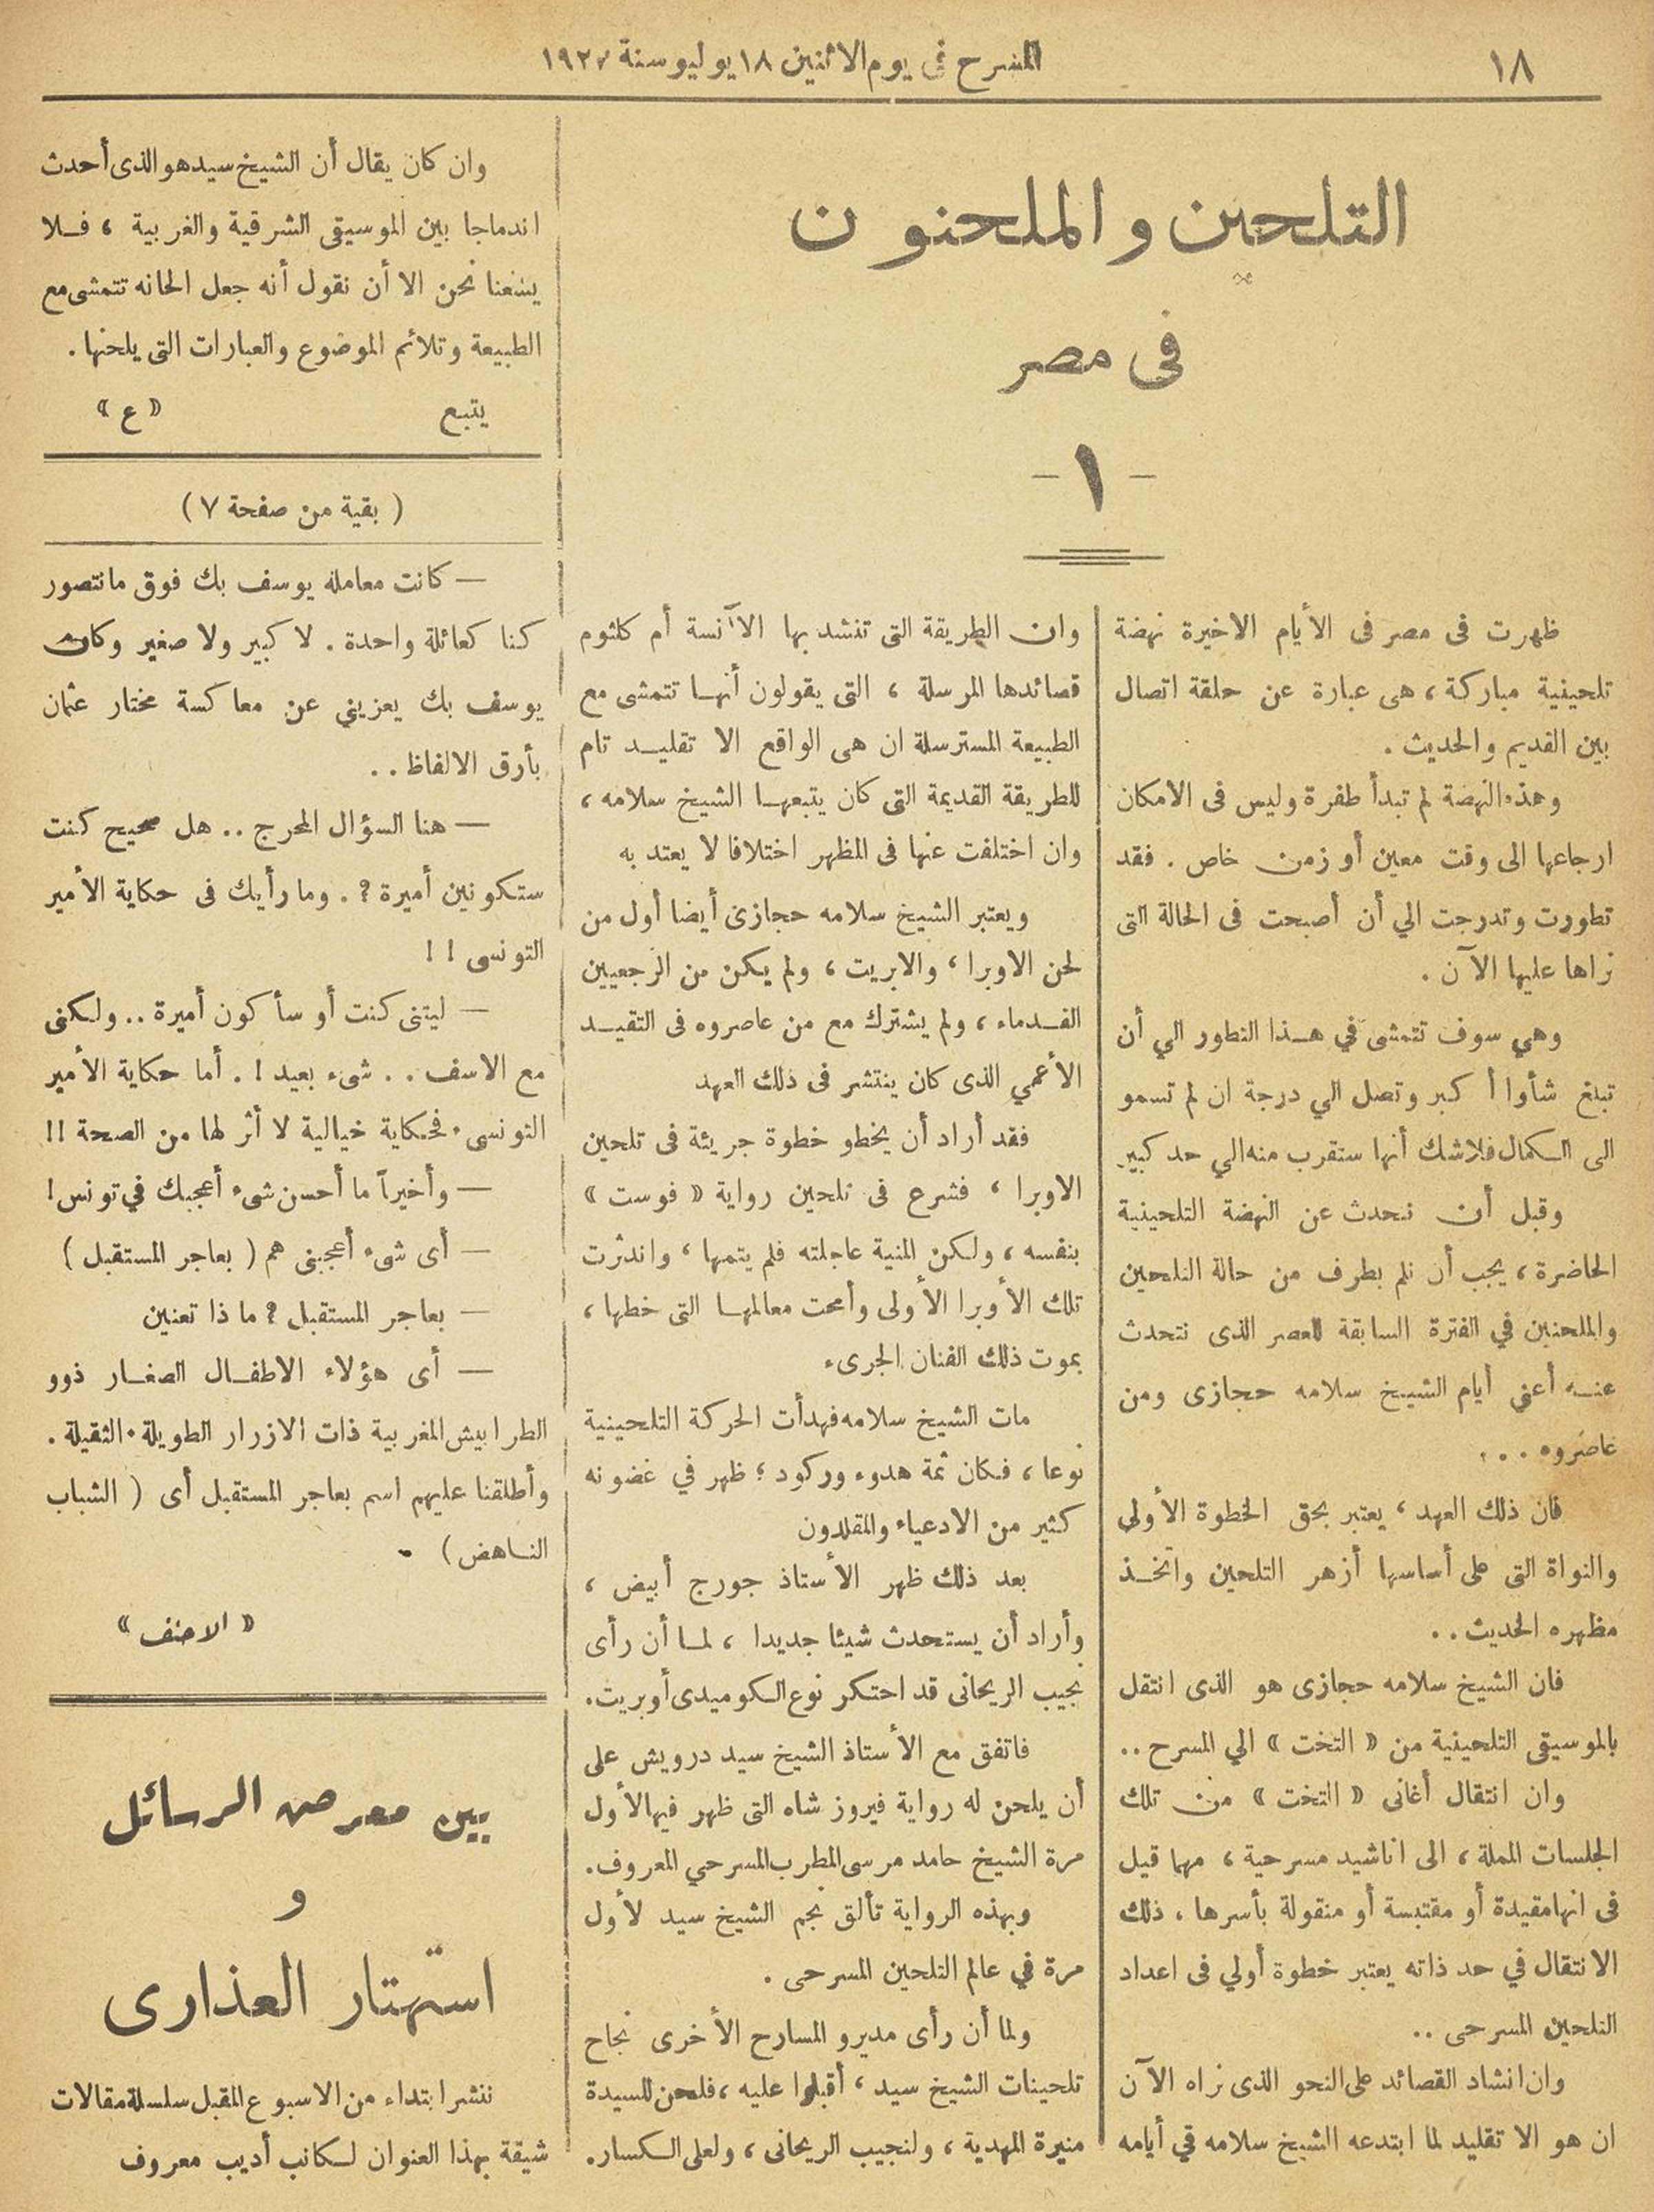 ١٨
المسرح فى يوم الاثنين ١٨ يوليو سنة ١٩٢٧
التلحين والملحنون
فى مصر
- ١ -
ظهرت فى مصر فى الأيام الاخيرة نهضة
تلحينية مباركة ، هى عبارة عن حلقة اتصال
بين القديم والحديث .
وهذه النهضة لم تبدأ طفرة وليس فى الامكان
ارجاعها الى وقت معين أو زمن خاص . فقد
تطورت وتدرجت الي أن أصبحت فى الحالة التى
نراها عليها الآن .
وهي سوف تتمشى في هـذا التطور الي أن
تبلغ شأوا أكبر وتصل الي درجة ان لم تسمو
الى الـكمال فلاشك أنها ستقرب منه الي حد كبير
وقبل أن نتحدث عن النهضة التلحينية
الحاضرة ، يجب أن نلم بطرف من حالة التلحين
والملحنين في الفترة السابقة للعصر الذى نتحدث
عنـه أعني أيام الشيخ سلامه حجازى ومن
عاصروه . . .
فان ذلك العهد ، يعتبر بحق الخطوة الأولي
والنواة التى على أساسها أزهر التلحين واتخـذ
مظهره الحديث . .
فان الشيخ سلامه حجازى هو الذى انتقل
بالموسيقى التلحينية من « التخت » الي المسرح ..
وان انتقال أغانى « التخت » من تلك
الجلسات المملة ، الى اناشيد مسرحية ، مهما قيل
فى انها مقيدة أو مقتبسة أو منقولة بأسرها ، ذلك
الانتقال في حد ذاته يعتبر خطوة أولي فى اعداد
التلحين المسرحى ..
وان انشاد القصائد على النحو الذى نراه الآن
ان هو الا تقليد لما ابتدعه الشيخ سلامه في أيامه
وان الطريقة التى تنشد بها الآنسة أم كلثوم
قصائدها المرسلة ، التى يقولون أنهـا تتمشى مع
الطبيعة المسترسلة ان هى الواقع الا تقليـد تام
للطريقة القديمة التى كان يتبعهـا الشيخ سلامه ،
وان اختلفت عنها فى المظهر اختلافا لا يعتد به
ويعتبر الشيخ سلامه حجازى أيضا أول من
لحن الاوبرا ، والابريت ، ولم يكن من الرجعيين
القـدماء ، ولم يشترك مع من عاصروه فى التقيـد
الأعمي الذى كان ينتشر فى ذلك العهد
فقد أراد أن يخطو خطوة جريئة فى تلحين
الاوبرا ، فشرع فى تلحين رواية « فوست »
بنفسه ، ولـكن المنية عاجلته فلم يتمها ، واندثرت
تلك الأوبرا الأولى وأمحت معالمهـا التى خطها ،
بموت ذلك الفنان الجرىء
مات الشيخ سلامه فهدأت الحركة التلحينية
نوعا ، فـكان ثمة هدوء وركود ؛ ظهر في غضونه
كثير من الادعياء والمقلدون
بعد ذلك ظهر الأستاذ جورج أبيض ،
وأراد أن يستحدث شيئا جديدا ، لمـا أن رأى
نجيب الريحانى قد احتـكر نوع الـكوميدى أوبريت.
فاتفق مع الأستاذ الشيخ سيد درويش على
أن يلحن له رواية فيروز شاه التى ظهر فيها لأول
مرة الشيخ حامد مرسى المطرب المسرحي المعروف.
وبهذه الرواية تألق نجم الشيخ سيد لأول
مرة في عالم التلحين المسرحى .
ولما أن رأى مديرو المسارح الأخرى نجاح
تلحينات الشيخ سيد ، أقبلوا عليه ، فلحن للسيدة
منيرة المهدية ، ولنجيب الريحانى ، ولعلى الـكسار.
وان كان يقال أن الشيخ سيد هو الذى أحدث
اندماجا بين الموسيقى الشرقية والغربية ، فـلا
يسعنا نحن الا أن نقول أنه جعل الحانه تتمشى مع
الطبيعة وتلائم الموضوع والعبارات التى يلحنها .
يتبع « ع »
( بقية من صفحة ٧ )
— كانت معاملة يوسف بك فوق ما تتصور
كنا كعائلة واحدة . لا كبير ولا صغير وكان
يوسف بك يعزيني عن معاكسة مختار عثمان
بأرق الالفاظ . .
— هنا السؤال المحرج .. هل صحيح كنت
ستكونين أميرة ? . وما رأيك فى حكاية الأمير
التونسى ! !
— ليتنى كنت أو سأكون أميرة .. ولـكنى
مع الاسف . . شىء بعيد ! . أما حكاية الأمير
التونسى فحكاية خيالية لا أثر لها من الصحة !!
— وأخيراً ما أحسن شىء أعجبك في تونس !
— أى شىء أعجبنى هم ( بعاجر المستقبل )
— بعاجر المستقبل ? ما ذا تعنين
— أى هؤلاء الاطفـال الصغـار ذوو
الطرابيش المغربية ذات الازرار الطويلة الثقيلة .
وأطلقنا عليهم اسم بعاجر المستقبل أى ( الشباب
النـاهض ) .
« الاحنف »
بين معرض الرسائل
و
استهتار العذارى
ننشر ابتداء من الاسبوع المقبل سلسلة مقالات
شيقة بهذا العنوان لـكاتب أديب معروف